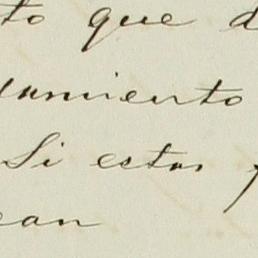 to que d
amiento
Si estas
ean